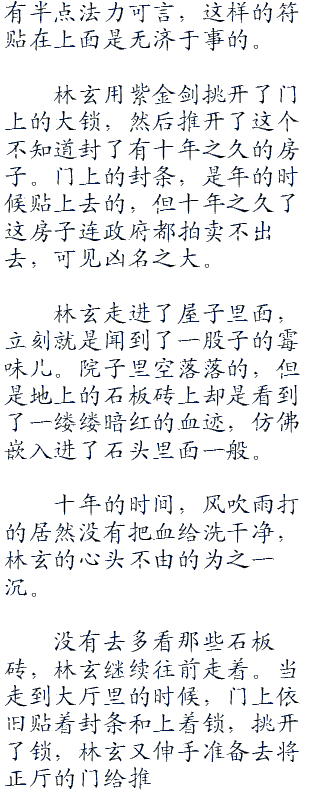 有半点法力可言，这样的符
贴在上面是无济于事的。
林玄用紫金剑挑开了门
上的大锁，然后推开了这个
不知道封了有十年之久的房
子。门上的封条，是年的时
候贴上去的，但十年之久了
这房子连政府都拍卖不出
去，可见凶名之大。
林玄走进了屋子里面，
立刻就是闻到了一股子的霉
味儿。院子里空落落的，但
是地上的石板砖上却是看到
了一缕缕暗红的血迹，仿佛
嵌入进了石头里面一般。
十年的时间，风吹雨打
的居然没有把血给洗干净，
林玄的心头不由的为之一
沉。
没有去多看那些石板
砖，林玄继续往前走着。当
走到大厅里的时候，门上依
旧贴着封条和上着锁，挑开
了锁，林玄又伸手准备去将
正厅的门给推